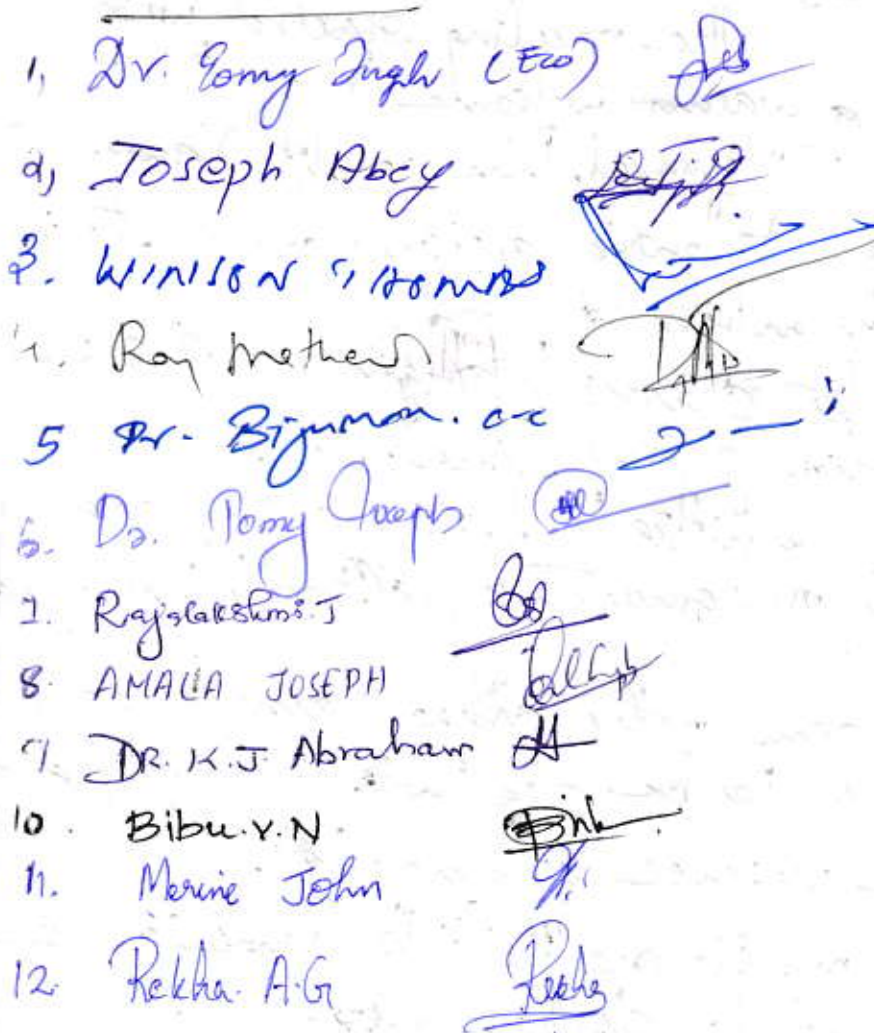 1, Dr. Tomy Joseph (Eco)
2, Joseph Abey
3. WINISON THOMAS
4. Roy Mathew
5 Dr. Bijumon. C-C
6. Dr. Tomy Joseph
7. Rajalakshmi.J
8. AMALA JOSEPH
9 DR. K.J. Abraham
10. Bibu.V.N.
11. Merine John
12. Rekha. A.G Rekha